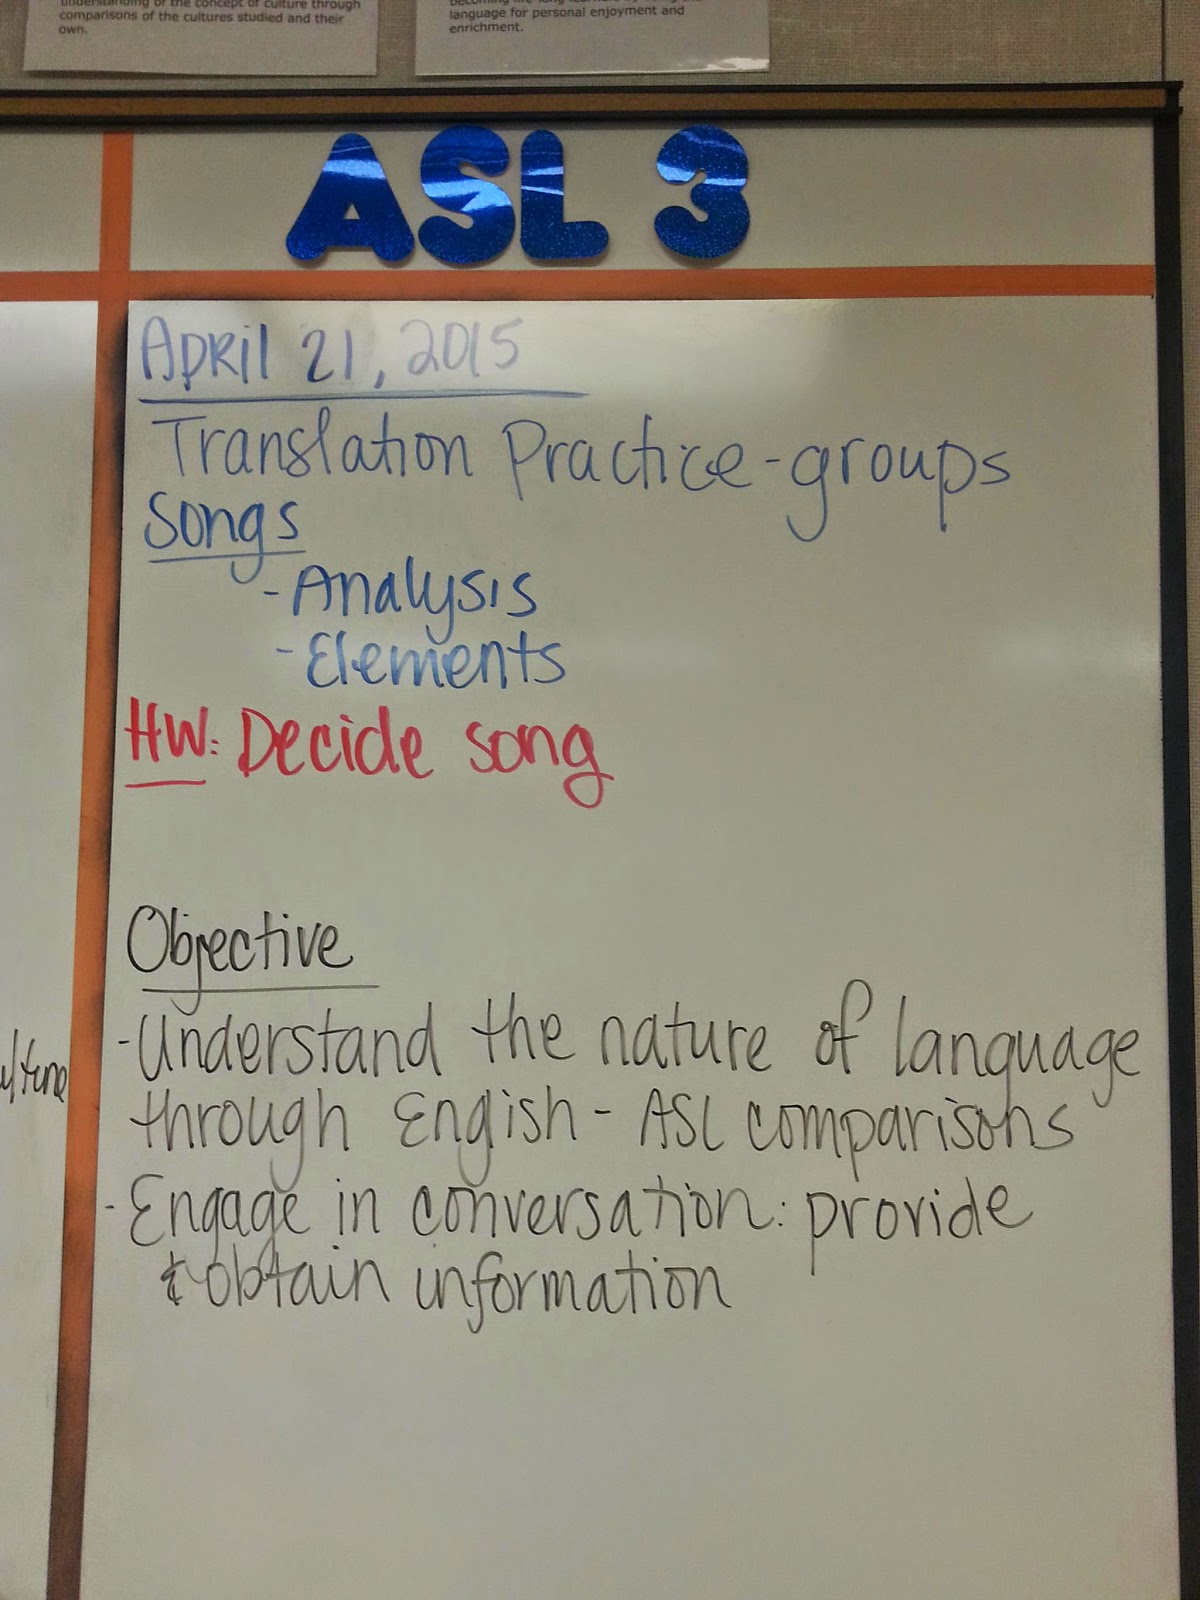 understanding of the concept of culture through
comparisons of the cultures studied and their
own.
language for personal enjoyment and
enrichment.
ASL 3
April 21, 2015
Translation Practice-groups
Songs
- Analysis
- Elements
HW: Decide song
Objective
- Understand the nature of language
through English - ASL comparisons
- Engage in conversation: provide
& obtain information